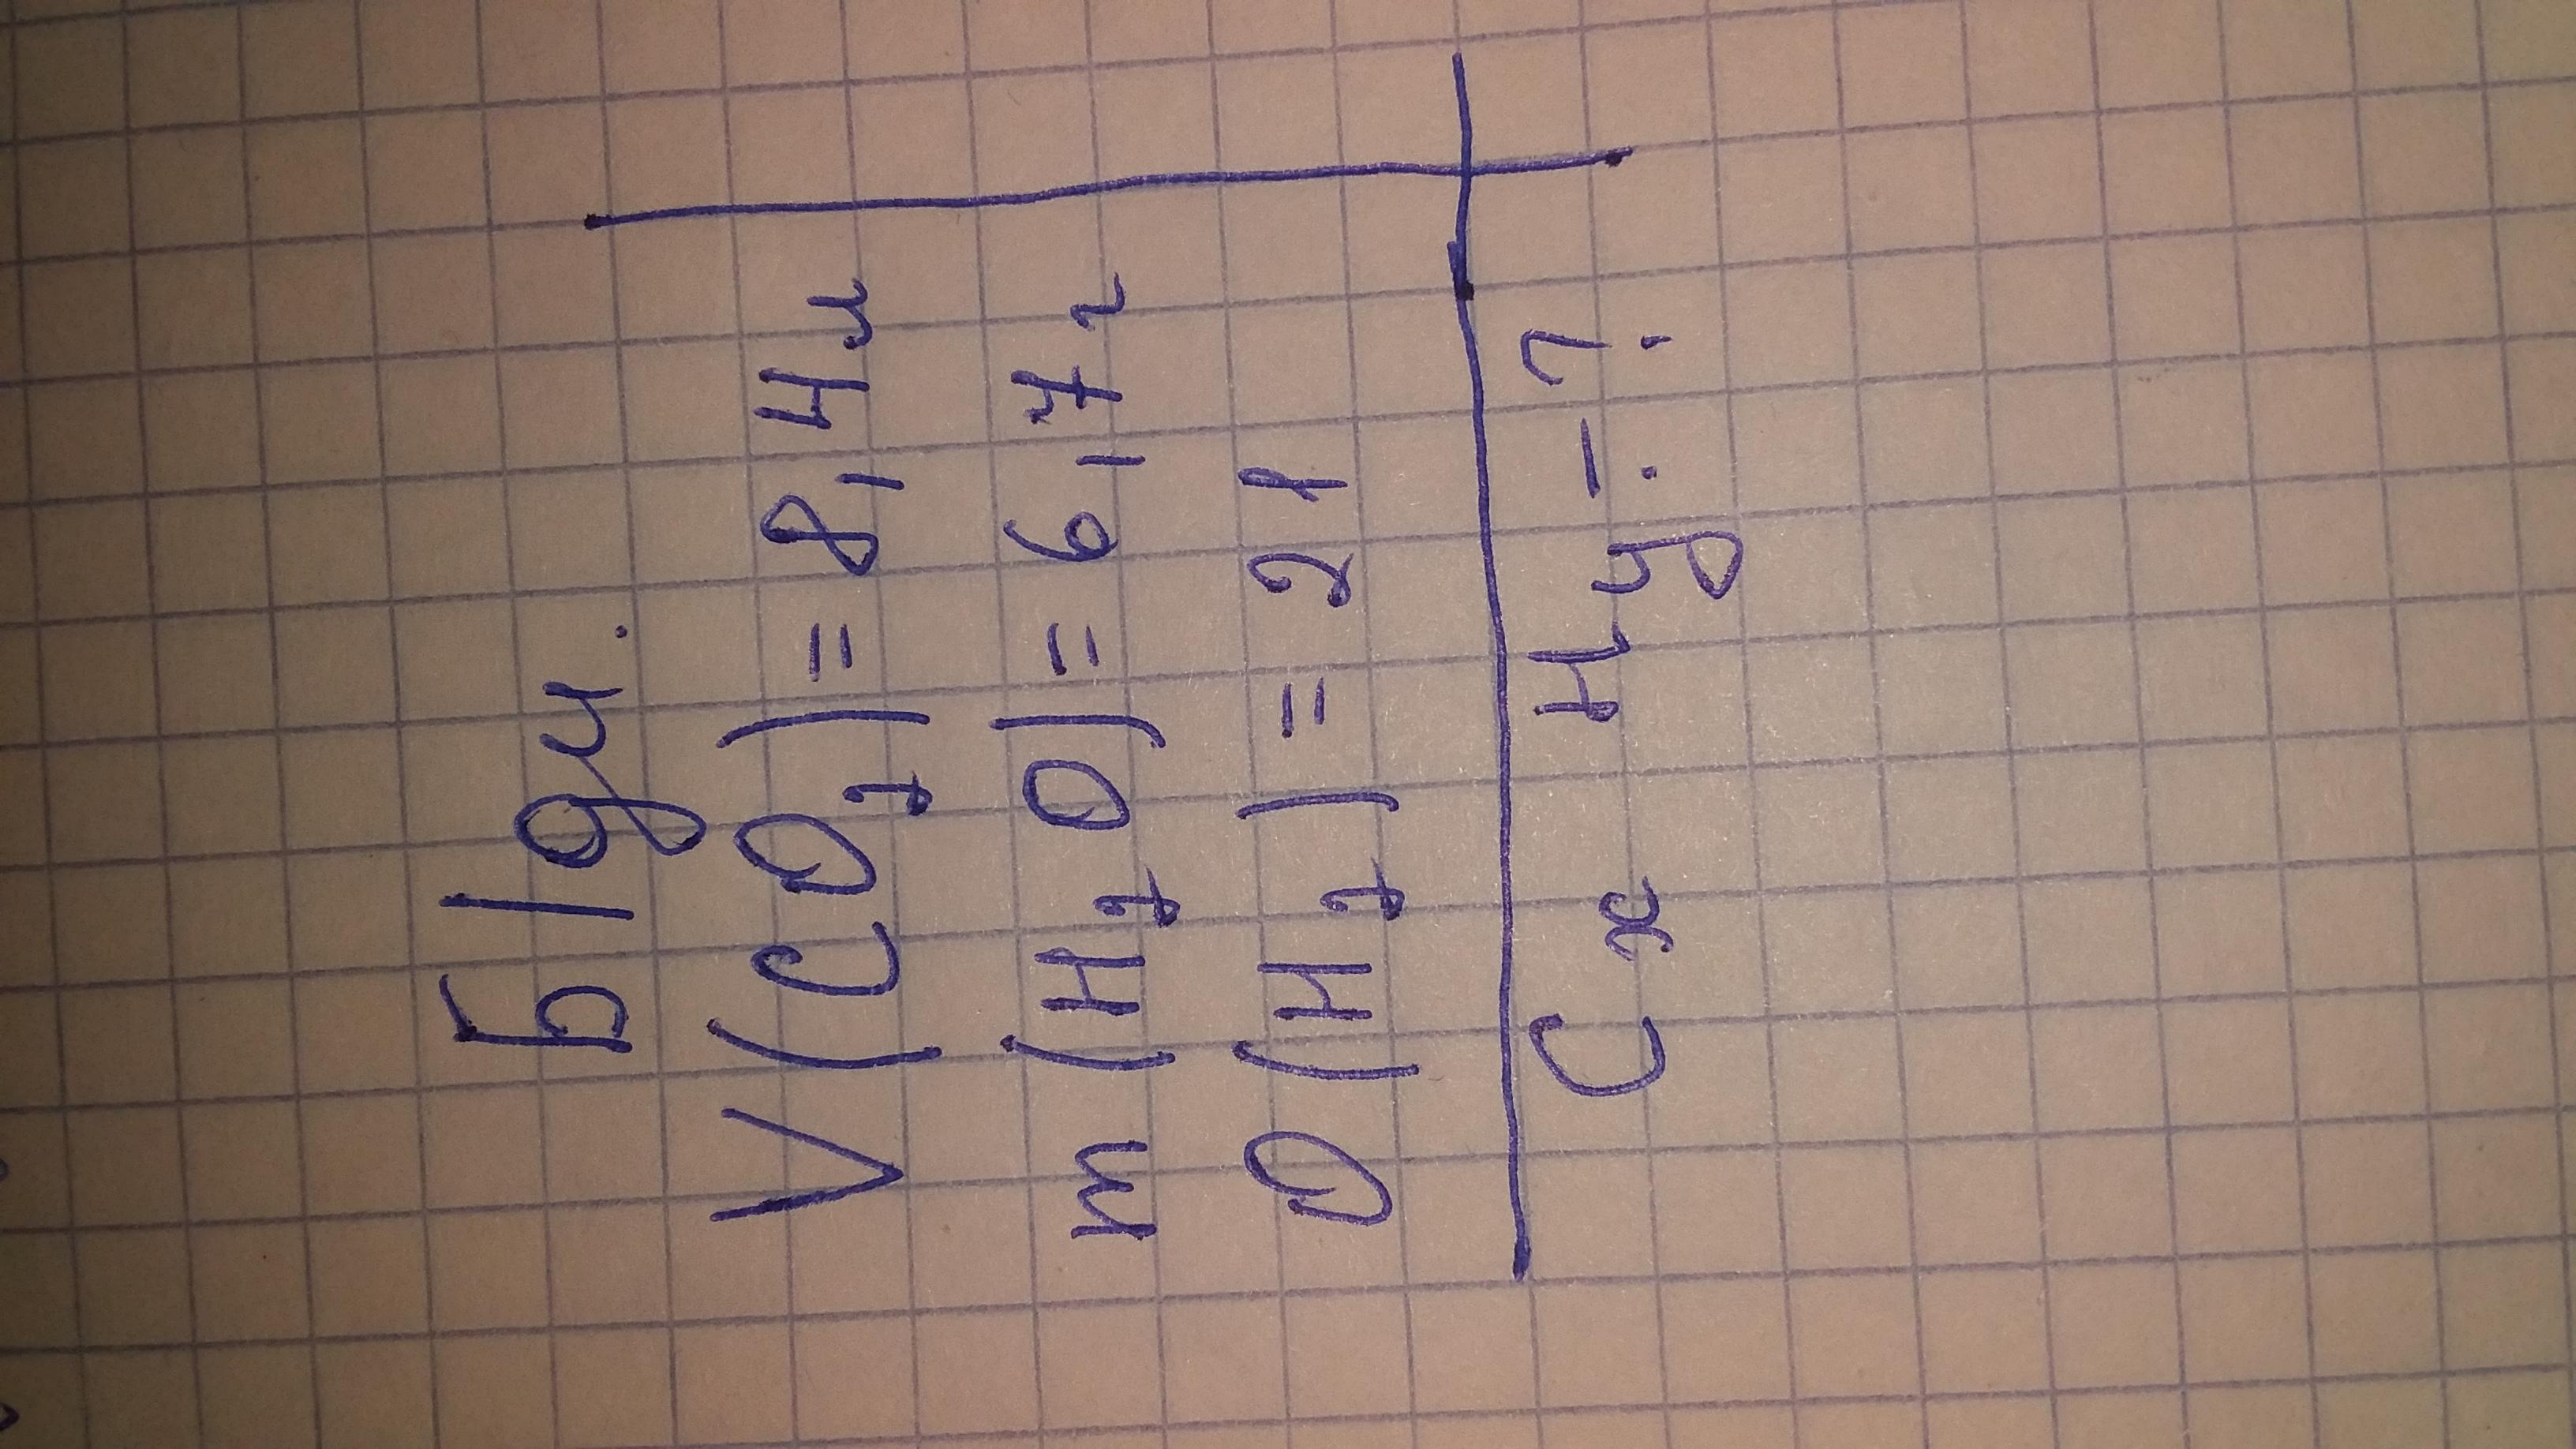 б/д у.
V(CO₂) = 8,4 л
m(H₂O) = 6,7 г
D(H₂) = 21
Cx Hy - ?